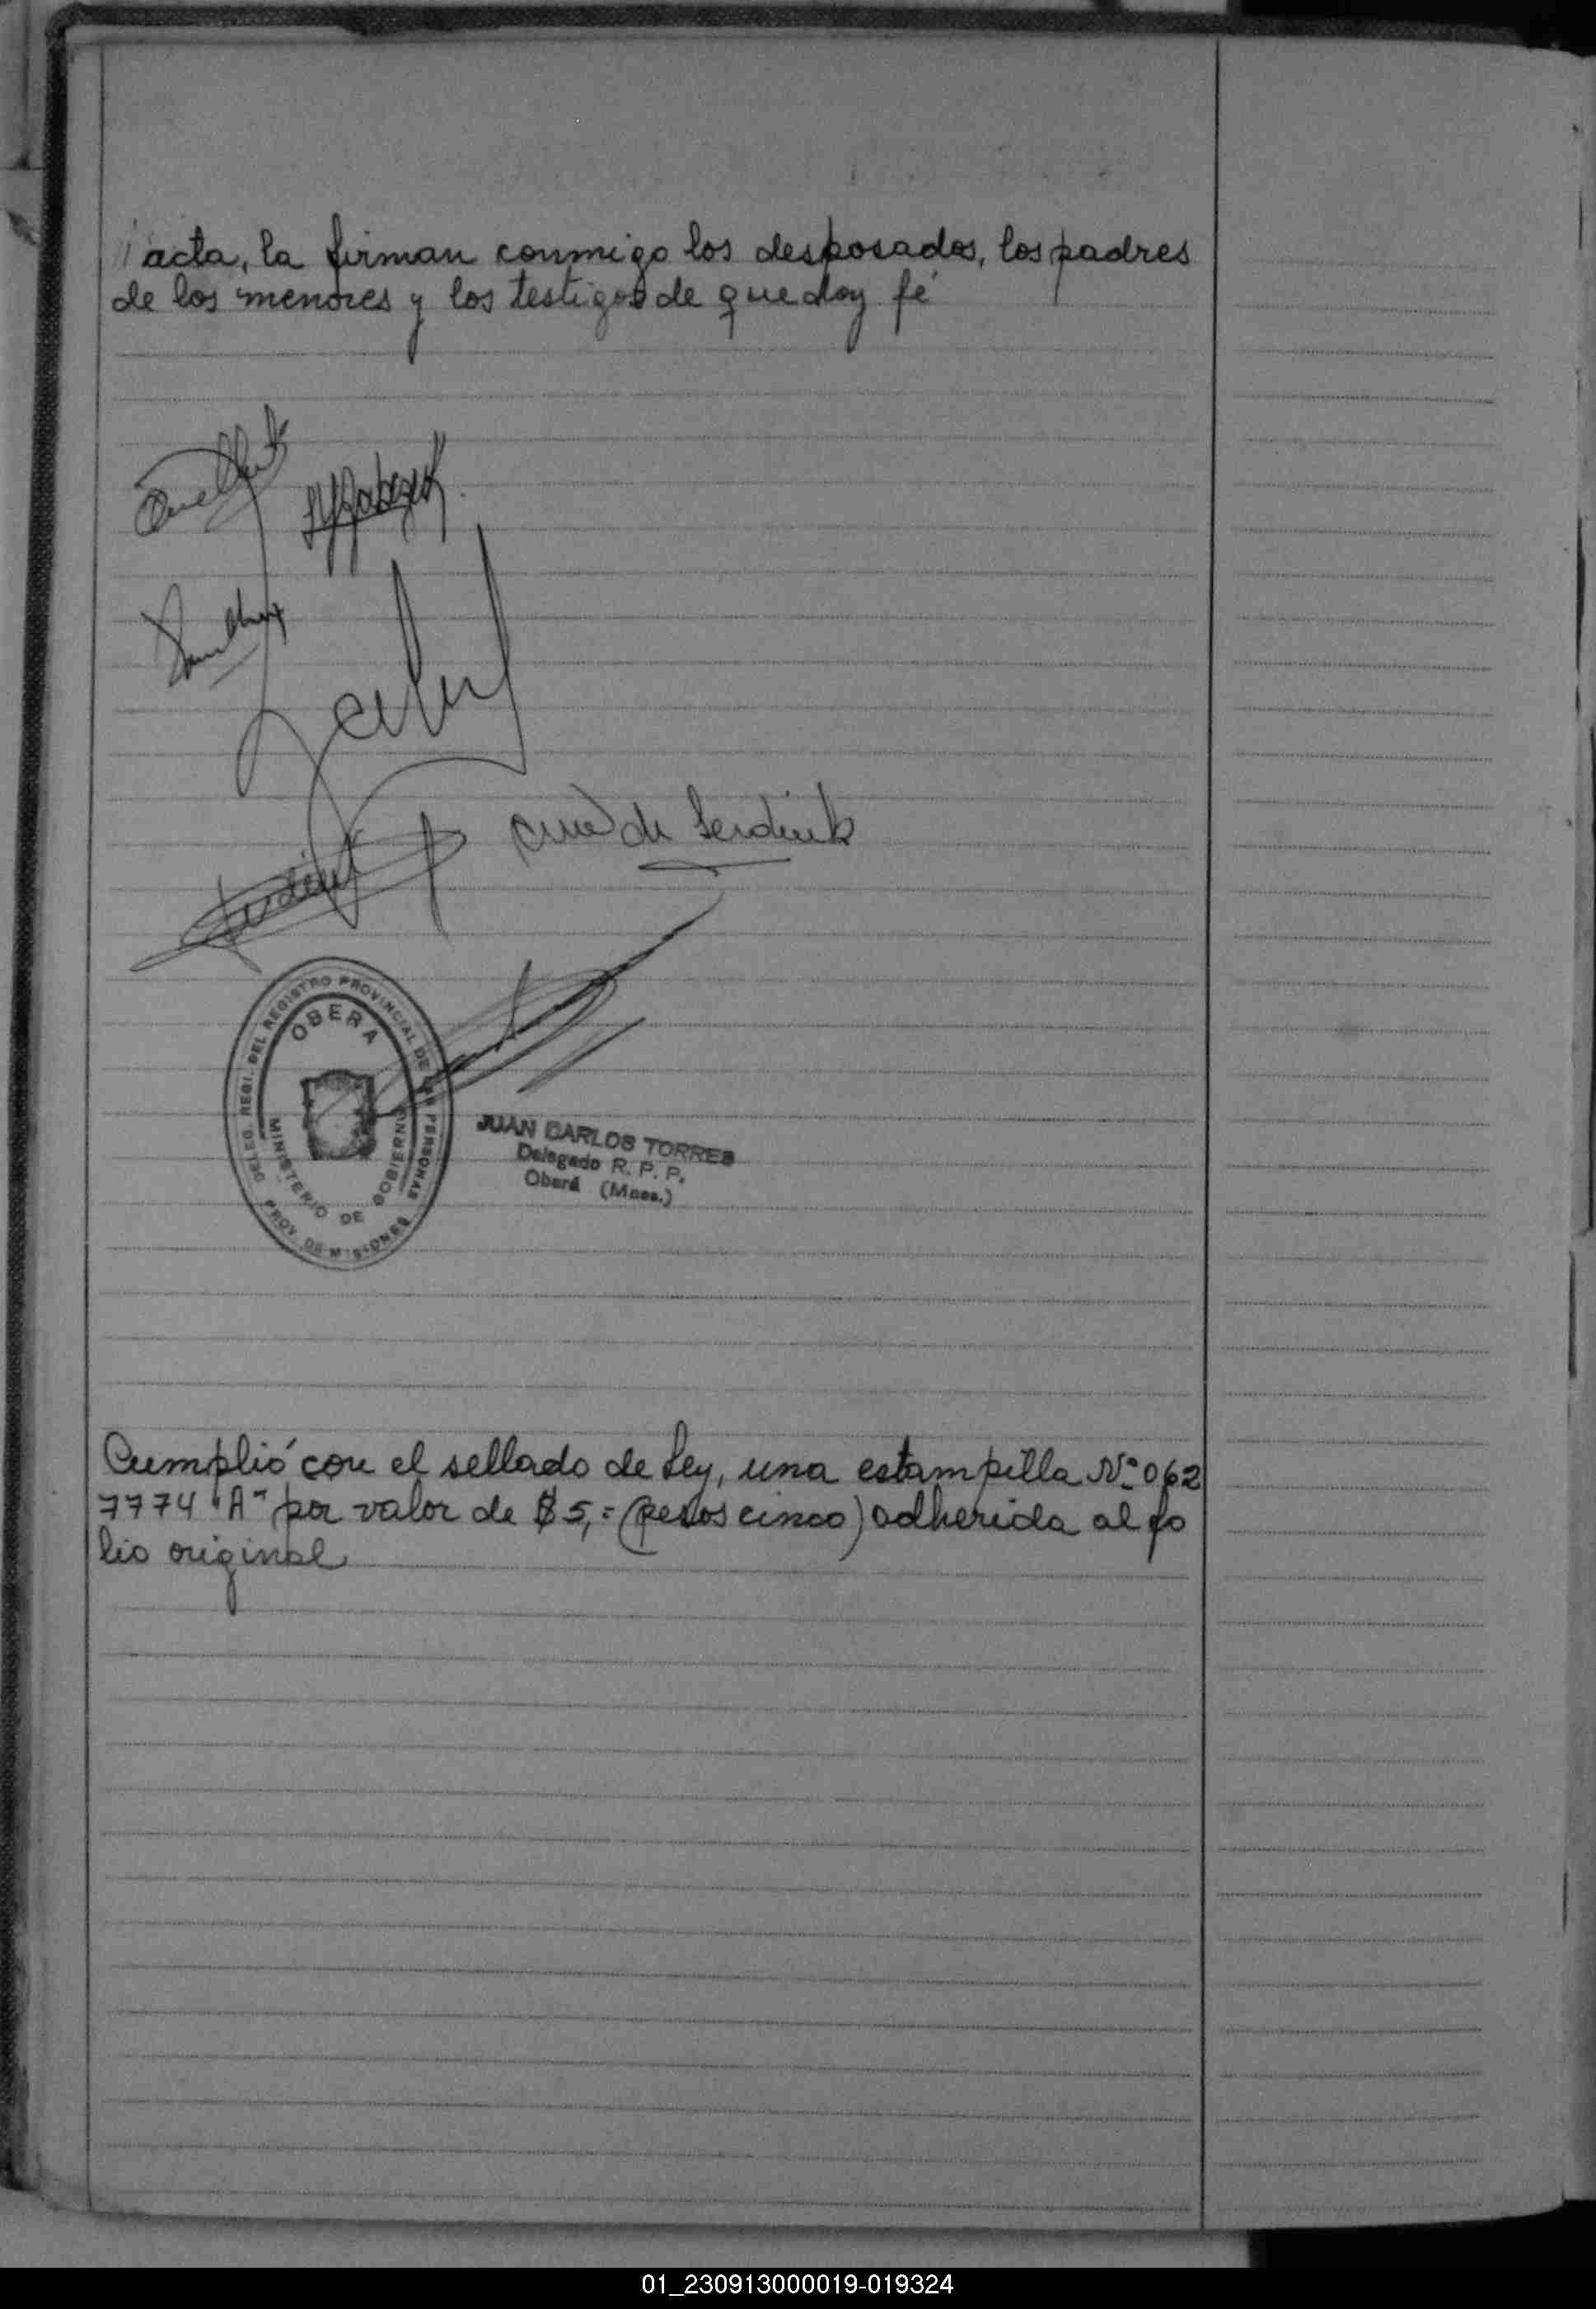 acta, la firman conmigo los desposados, los padres
de los menores y los testigos de que doy fé
de Serdiuk
DELEG. REGI. DEL REGISTRO PROVINCIAL DE LAS PERSONAS
OBERA
MINISTERIO DE GOBIERNO
PROV. DE MISIONES
JUAN CARLOS TORRES
Delegado R. P. P.
Oberá (Mnes.)
Cumplió con el sellado de Ley, una estampilla Nº 062
7774 "A" por valor de $ 5,= (pesos cinco) adherida al fo
lio original
01_230913000019-019324